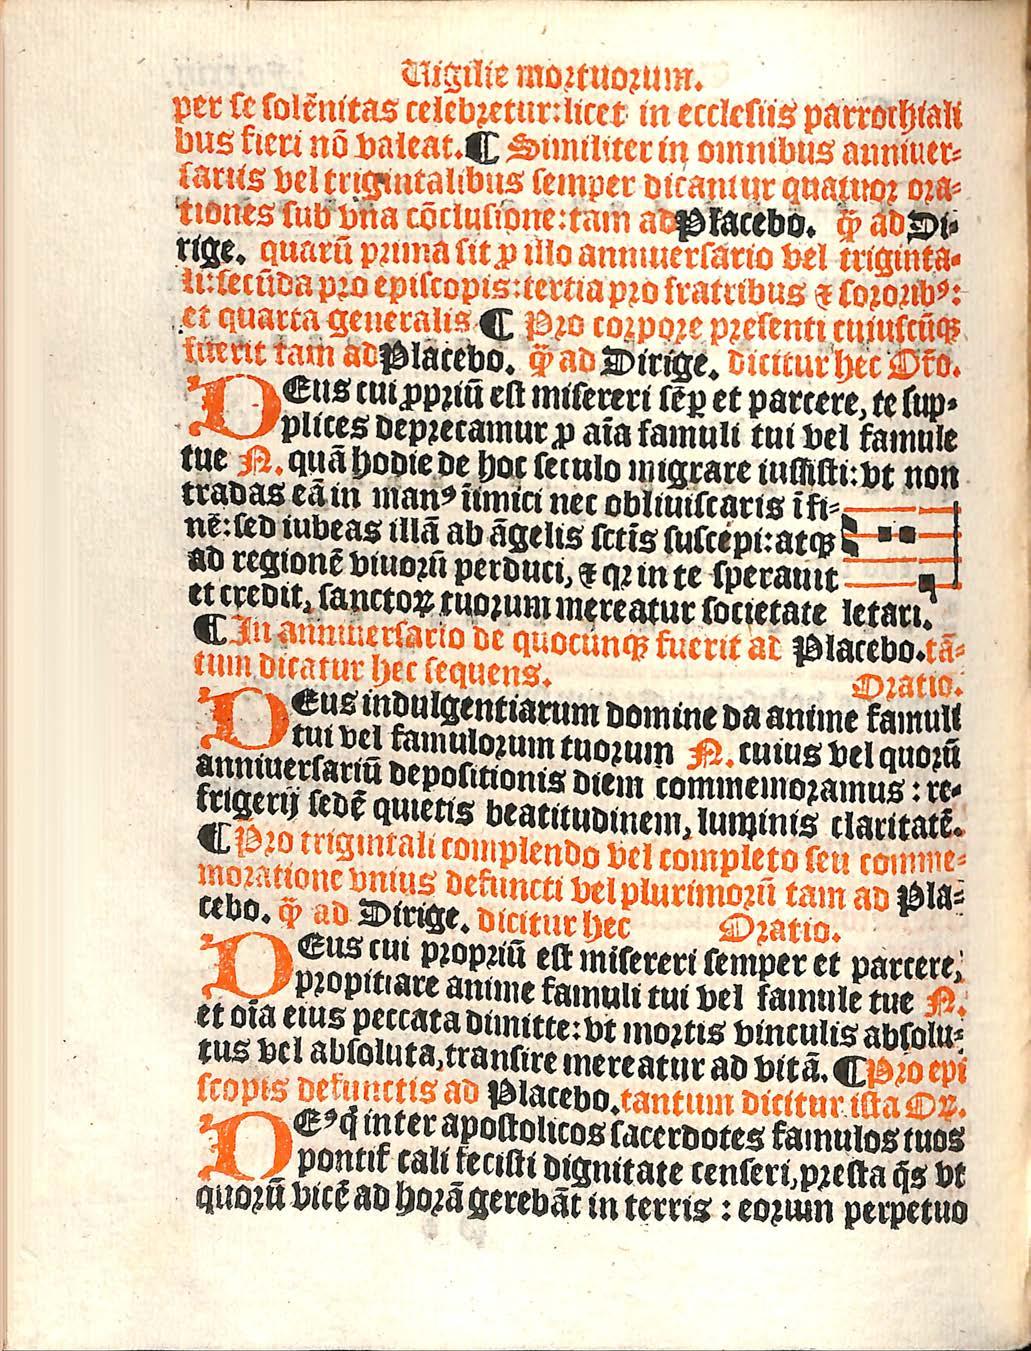 Vigilie mortuorum.
per se solēnitas celebretur: licet in ecclesiis parrochiali
bus fieri nō valeat. ¶ Similiter in omnibus anniuer-
sariis vel trigintalibus semper dicantur quatuor ora-
tiones sub vna cōclusione: tam ad Placebo. q̄ ad Di-
rige. quarū prima sit ꝓ illo anniuersario vel triginta-
li: secūda pro episcopis: tertia pro fratribus ⁊ sororibꝰ:
et quarta generalis ¶ Pro corpore presenti cuiuscūqꝫ
fuerit tam ad Placebo. q̄ ad Dirige. dicitur hec Or̄o.
DEus cui ꝓpriū est misereri sēꝑ et parcere, te sup-
plices deprecamur ꝓ aīa famuli tui vel famule
tue N. quā hodie de hoc seculo migrare iussisti: vt non
tradas eā in manꝰ inīmici nec obliuiscaris ī fi-
nē: sed iubeas illā ab āgelis sctīs suscepi: atqꝫ
ad regionē viuorū perduci, ⁊ qꝛ in te sperauit
et credit, sanctoꝝ tuorum mereatur societate letari.
¶ In anniuersario de quocunqꝫ fuerit ad Placebo. tā-
tum dicatur hec sequens. Oratio.
DEus indulgentiarum domine da anime famuli
tui vel famulorum tuorum N. cuius vel quorū
anniuersariū depositionis diem commemoramus: re-
frigerij sedē quietis beatitudinem, luminis claritatē.
¶ Pro trigintali complendo vel completo seu comme-
moratione vnius defuncti vel plurimorū tam ad Pla-
cebo. q̄ ad Dirige. dicitur hec Oratio.
DEus cui propriū est misereri semper et parcere,
propitiare anime famuli tui vel famule tue N.
et oīa eius peccata dimitte: vt mortis vinculis absolu-
tus vel absoluta, transire mereatur ad vitā. ¶ Pro epi
scopis defunctis ad Placebo. tantum dicitur ista Oꝝ.
DEꝰ q̇ inter apostolicos sacerdotes famulos tuos
pontif cali fecisti dignitate censeri, presta q̄s vt
quorū vicē ad horā gerebāt in terris: eorum perpetuo